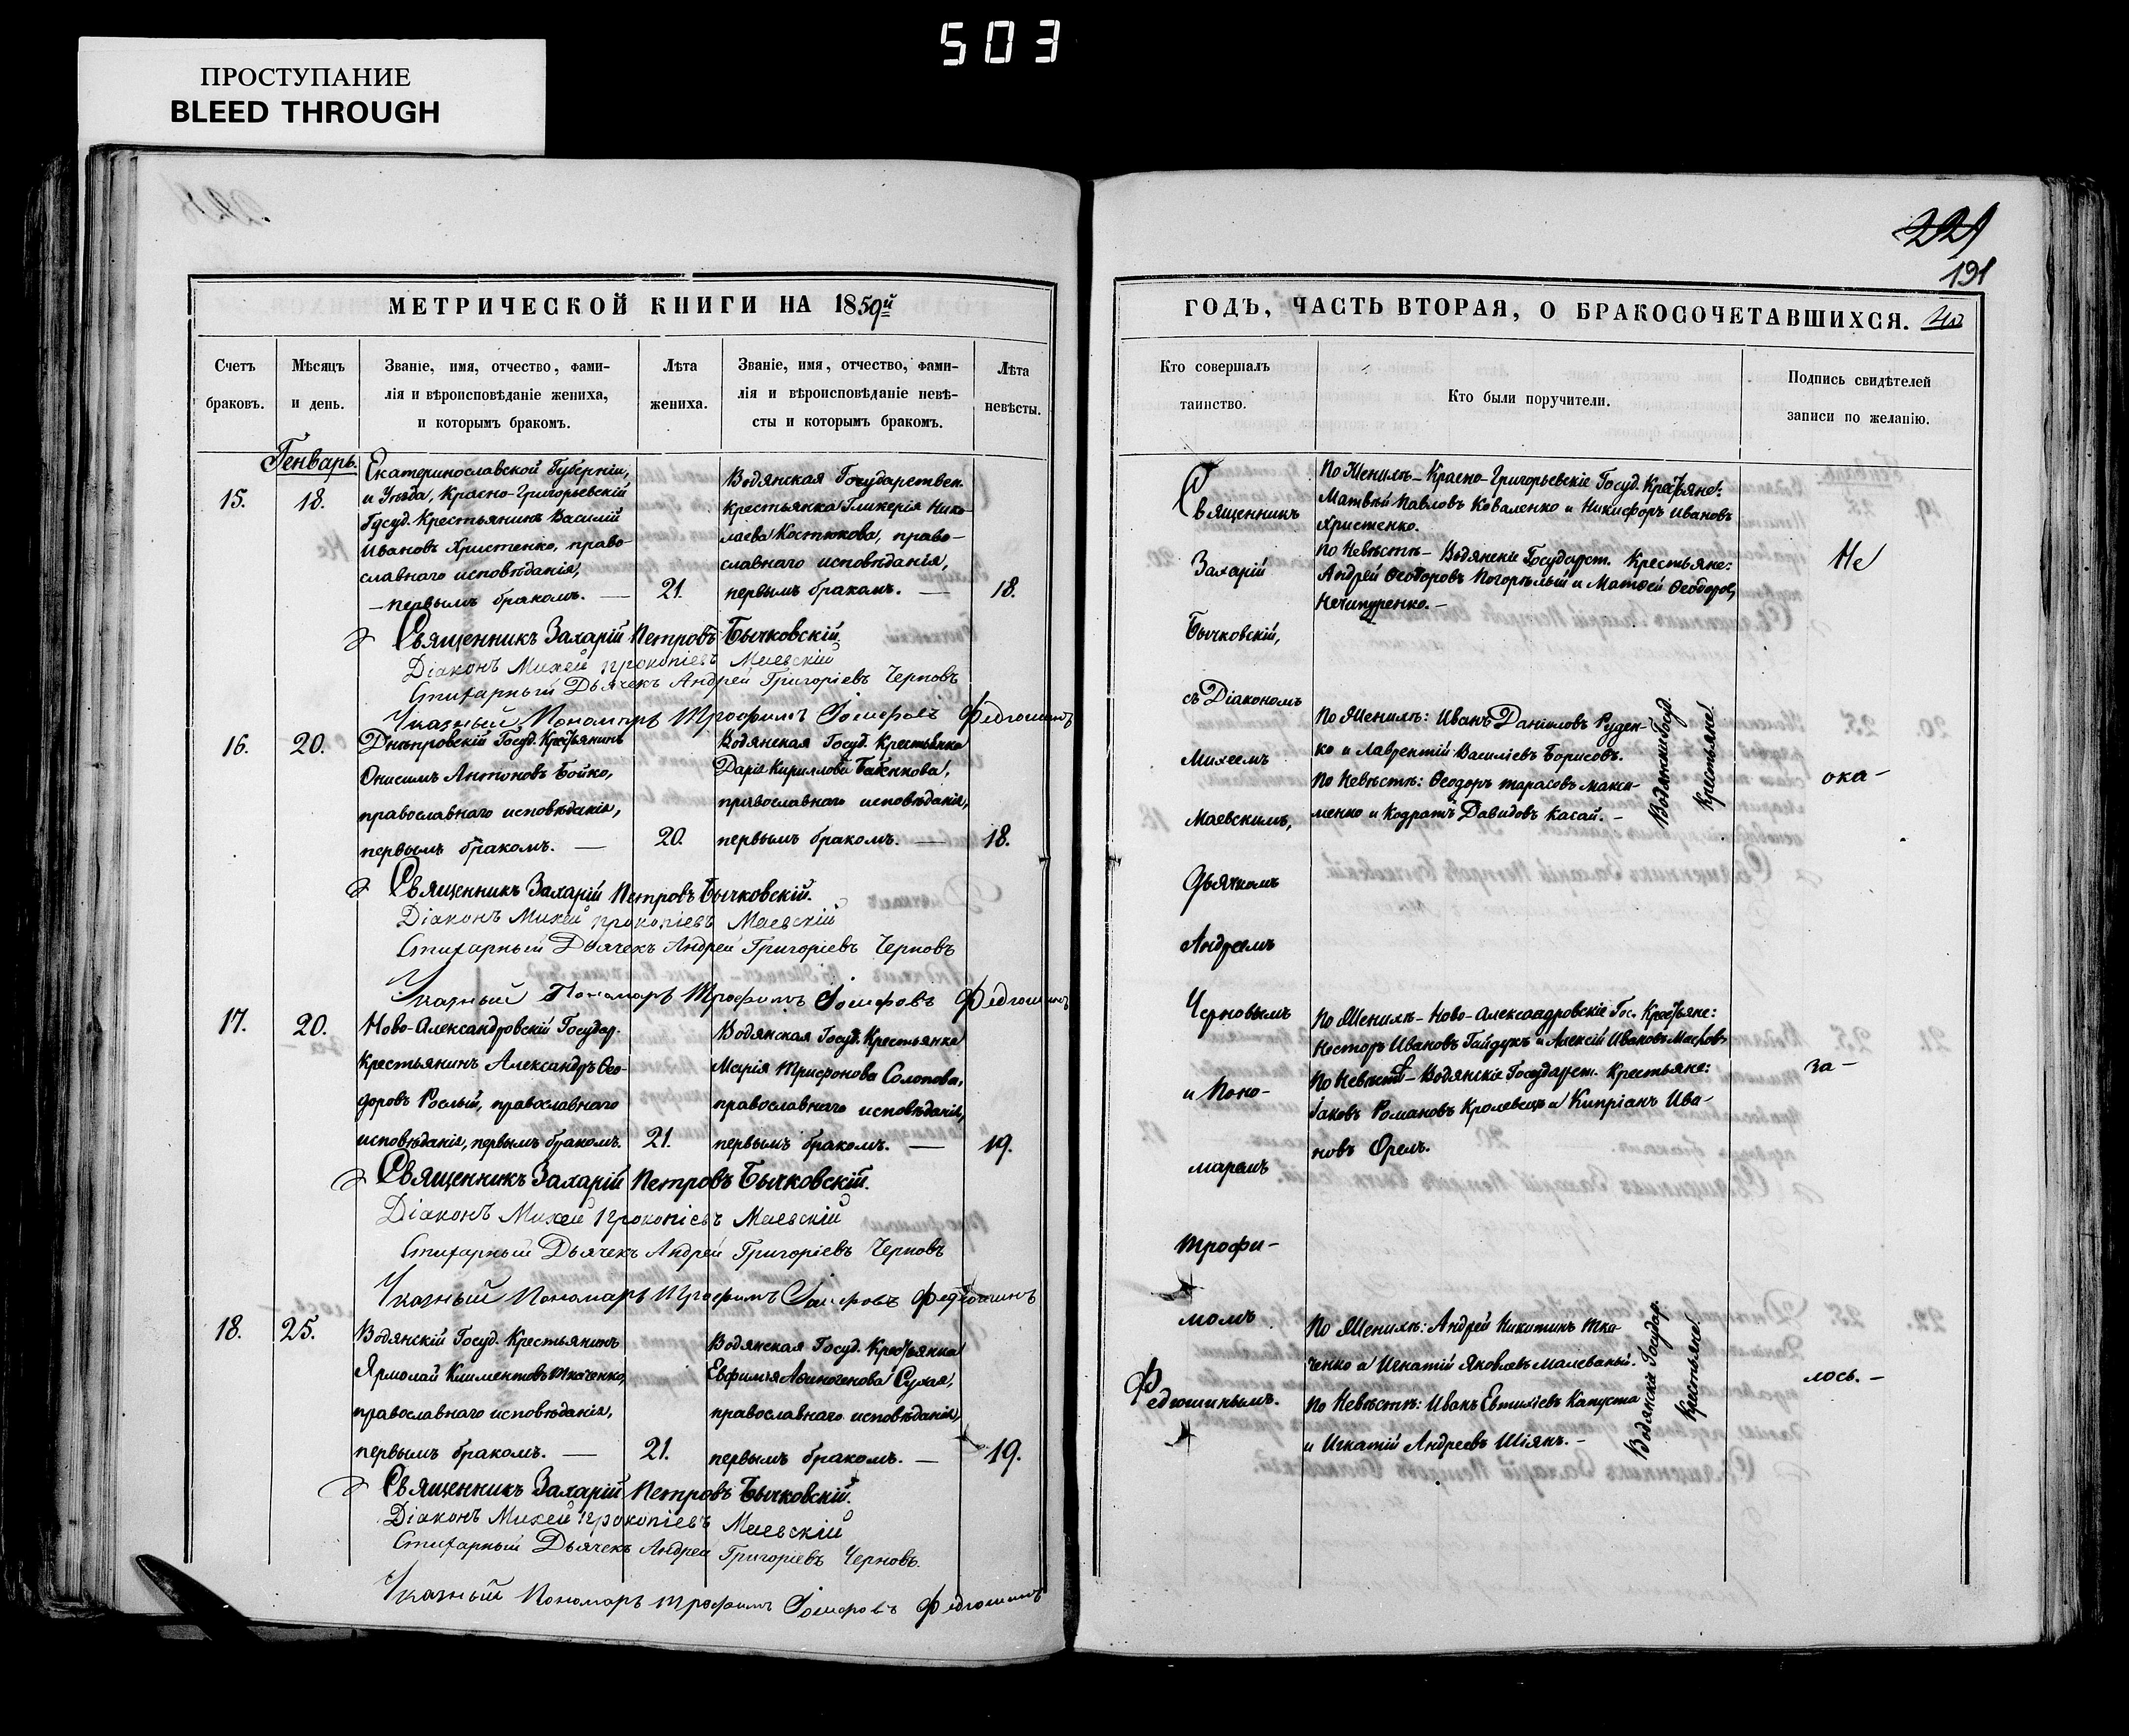 503
ПРОСТУПАНИЕ
BLEED THROUGH
221
191
МЕТРИЧЕСКОЙ КНИГИ НА 1859й
Счетъ браковъ.
Мѣсяцъ и день.
Званіе, имя, отчество, фами-
лія и вѣроисповѣданіе жениха,
и которымъ бракомъ.
Лѣта жениха.
Званіе, имя, отчество, фами-
лія и вѣроисповѣданіе невѣ-
сты и которымъ бракомъ.
Лѣта невѣсты.
Генварь.
15.
18.
Екатеринославской Губерніи,
и Уѣзда, Красно-Григорьевскій
Госуд. Крестьянинъ Василій
Ивановъ Христенко, право-
славнаго исповѣданія,
– первымъ бракомъ. —
21.
Водянская Государствен.
Крестьянка Гликерія Нико-
лаева Костюкова, право-
славнаго исповѣданія,
первымъ бракомъ. —
18.
Священникъ Захарій Петровъ Бычковскій.
Діаконъ Михей Прокопіевъ Маевскій
Стихарный Дьячекъ Андрей Григоріевъ Черновъ
Указный Пономарь Трофимъ Іосифовъ Федюшинъ
16.
20.
Днѣпровскій Госуд. Крестьянинъ
Онисимъ Антоновъ Бойко,
православнаго исповѣданія,
первымъ бракомъ. —
20.
Водянская Госуд. Крестьянка
Дарія Кириллова
православнаго исповѣданія,
первымъ бракомъ. —
18.
Священникъ Захарій Петровъ Бычковскій.
Діаконъ Михей Прокопіевъ Маевскій
Стихарный Дьячекъ Андрей Григоріевъ Черновъ
Указный Пономарь Трофимъ Іосифовъ Федюшинъ
17.
20.
Ново-Александровскій Государ.
Крестьянинъ Александръ Ѳео-
доровъ Рослый, православнаго
исповѣданія, первымъ бракомъ.
21.
Водянская Госуд. Крестьянка
Марія Трифонова Солопова,
православнаго исповѣданія,
первымъ бракомъ. —
19.
Священникъ Захарій Петровъ Бычковскій.
Діаконъ Михей Прокопіевъ Маевскій
Стихарный Дьячекъ Андрей Григоріевъ Черновъ
Указный Пономарь Трофимъ Іосифовъ Федюшинъ
18.
25.
Водянскій Госуд. Крестьянинъ
Ярмолай Климентовъ Ткаченко,
православнаго исповѣданія,
первымъ бракомъ. —
21.
Водянская Госуд. Крестьянка
Евфимія Аѳиногенова Сухая,
православнаго исповѣданія,
первымъ бракомъ. —
19.
Священникъ Захарій Петровъ Бычковскій.
Діаконъ Михей Прокопіевъ Маевскій
Стихарный Дьячекъ Андрей Григоріевъ Черновъ.
Указный Пономарь Трофимъ Іосифовъ Федюшинъ
ГОДЪ, ЧАСТЬ ВТОРАЯ, О БРАКОСОЧЕТАВШИХСЯ.
Кто совершалъ таинство.
Кто были поручители.
Подпись свидѣтелей
записи по желанію.
Священникъ
Захарій
Бычковскій,
съ Діакономъ
Михеемъ
Маевскимъ,
Дьячкомъ
Андреемъ
Черновымъ
и Поно-
маремъ
Трофи-
момъ
Федюшинымъ.
По Женихѣ – Красно-Григорьевскіе Госуд. Крестьяне:
Матвѣй Павловъ Коваленко и Никифоръ Ивановъ
Христенко.
По Невѣстѣ – Водянскіе Государст. Крестьяне:
Андрей Ѳеодоровъ Погорѣлый и Матѳей Ѳеодоровъ
Нечипуренко. –
По Женихѣ: Иванъ Даніиловъ Руден-
ко и Лаврентій Василіевъ Борисовъ.
По Невѣстѣ: Ѳеодоръ Тарасовъ Макси-
менко и Кодратъ Давидовъ Касай. –
Водянскіе Госуд.
Крестьяне.
По Женихѣ – Ново-Александровскіе Гос. Крестьяне:
Несторъ Ивановъ Гайдукъ и Алексій Ивановъ
По Невѣстѣ – Водянскіе Государст. Крестьяне:
Іаковъ Романовъ Кролевецъ и Кипріанъ Ива-
новъ Орелъ.
По Женихѣ: Андрей Никитинъ Тка-
ченко и Игнатій Яковлевъ Малеваный.
По Невѣстѣ: Иванъ Евтихіевъ Капуста
и Игнатій Андреевъ Шіянъ. –
Водянскіе Государ.
Крестьяне.
Не
ока-
за-
лось. –